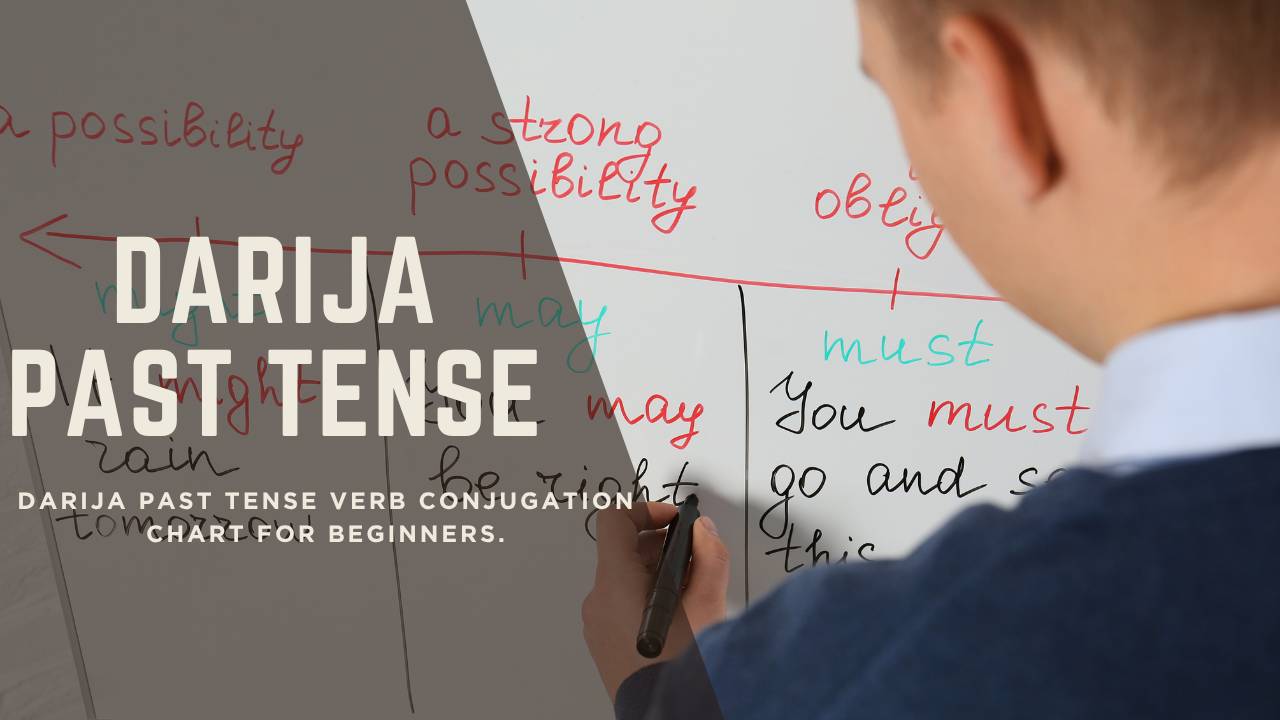 DARIJA
PAST TENSE
DARIJA PAST TENSE VERB CONJUGATION
CHART FOR BEGINNERS.
a possibility
a strong
possibility
might
may
must
might
rain
tomorrow
You may
be right
You must
go and
this